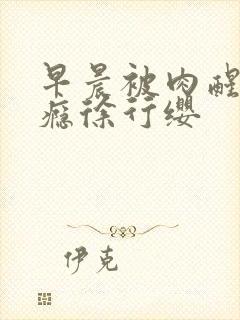 早晨被肉醒
瘾徐行缨
伊克